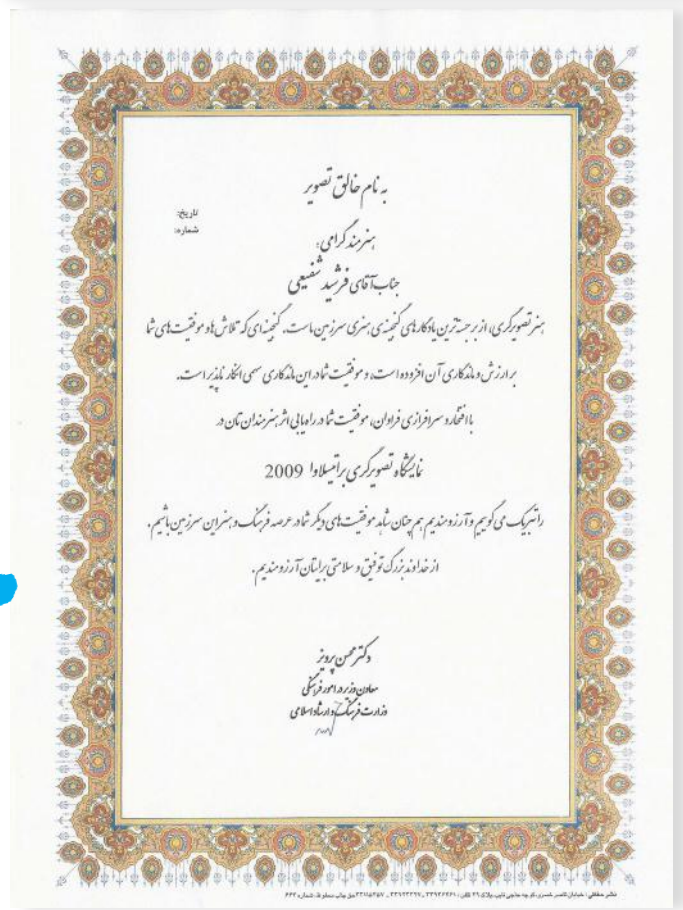 به نام خالق تصویر
تاریخ:
شماره:
هنرمند گرامی؛
جناب آقای فرشید شفیعی
هنر تصویرگری، از برجسته‌ترین یادگارهای گنجینه‌ی هنری سرزمین ماست. گنجینه‌ای که تلاش‌ها و موفقیت‌های شما
بر ارزش و ماندگاری آن افزوده است، و موفقیت شما در این ماندگاری سهمی انکار ناپذیر است.
با افتخار و سرافرازی فراوان، موفقیت شما در راه‌یابی اثر هنرمندان تان در
نمایشگاه تصویرگری براتیسلاوا 2009
را تبریک می گوییم و آرزومندیم هم چنان شاهد موفقیت‌های دیگر شما در عرصه فرهنگ و هنر این سرزمین باشیم.
از خداوند بزرگ توفیق و سلامتی برایتان آرزومندیم.
دکتر محسن پرویز
معاون وزیر در امور فرهنگی
وزارت فرهنگ و ارشاد اسلامی
نشر حققی: خیابان ناصر خسرو، کوچه حاجی نایب، پلاک ۲۹ تلفن: ۳۳۹۲۶۲۶۱ حق چاپ محفوظ، شماره ۶۶۳